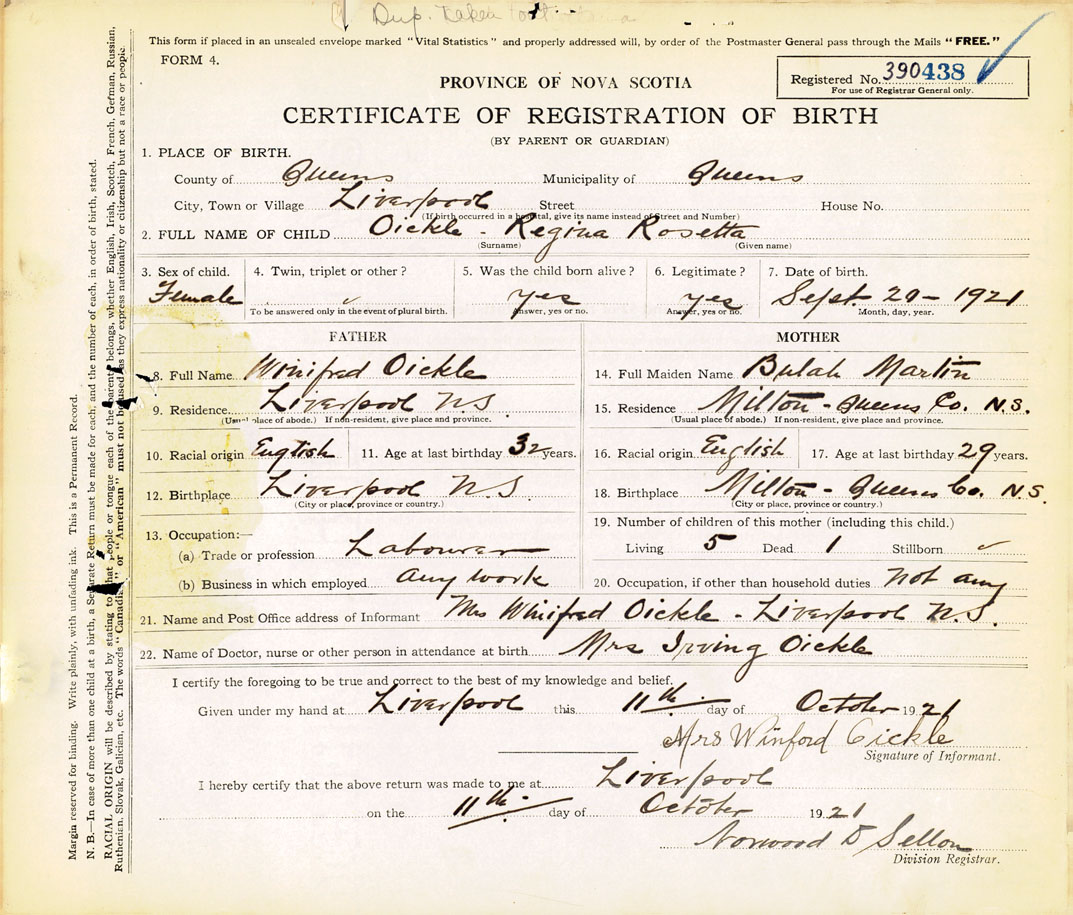 Dup. Taken
This form if placed in an unsealed envelope marked "Vital Statistics" and properly addressed will, by order of the Postmaster General pass through the Mails "FREE."
FORM 4.
Registered No. 390438
For use of Registrar General only.
PROVINCE OF NOVA SCOTIA
CERTIFICATE OF REGISTRATION OF BIRTH
(BY PARENT OR GUARDIAN)
1. PLACE OF BIRTH.
County of Queens Municipality of Queens
City, Town or Village Liverpool Street House No.
(If birth occurred in a hospital, give its name instead of Street and Number)
2. FULL NAME OF CHILD Oickle - Regina Rosetta
(Surname) (Given name)
3. Sex of child. 4. Twin, triplet or other? 5. Was the child born alive? 6. Legitimate? 7. Date of birth.
Female yes yes Sept. 20 - 1921
To be answered only in the event of plural birth. Answer, yes or no. Answer, yes or no. Month, day, year.
FATHER MOTHER
8. Full Name Winifred Oickle 14. Full Maiden Name Bulah Martin
9. Residence Liverpool NS 15. Residence Milton - Queens Co. N.S.
(Usual place of abode.) If non-resident, give place and province. (Usual place of abode.) If non-resident, give place and province.
10. Racial origin English 11. Age at last birthday 32 years. 16. Racial origin English 17. Age at last birthday 29 years.
12. Birthplace Liverpool N S. 18. Birthplace Milton - Queens Co. N.S.
(City or place, province or country.) (City or place, province or country.)
13. Occupation:— 19. Number of children of this mother (including this child.)
(a) Trade or profession Labourer Living 5 Dead 1 Stillborn
(b) Business in which employed any work 20. Occupation, if other than household duties not any
21. Name and Post Office address of Informant Mrs Winifred Oickle - Liverpool N.S.
22. Name of Doctor, nurse or other person in attendance at birth Mrs Irving Oickle
I certify the foregoing to be true and correct to the best of my knowledge and belief.
Given under my hand at Liverpool this 11th day of October 1921
Mrs Winford Oickle
Signature of Informant.
I hereby certify that the above return was made to me at Liverpool
on the 11th day of October 1921
Norwood D Sellon
Division Registrar.
Margin reserved for binding. Write plainly, with unfading ink. This is a Permanent Record.
N. B.—In case of more than one child at a birth, a Separate Return must be made for each, and the number of each, in order of birth, stated.
RACIAL ORIGIN will be described by stating to what people or tongue each of the parents belongs, whether English, Irish, Scotch, French, German, Russian,
Ruthenian, Slovak, Galician, etc. The words "Canadian" or "American" must not be used as they express nationality or citizenship but not a race or people.